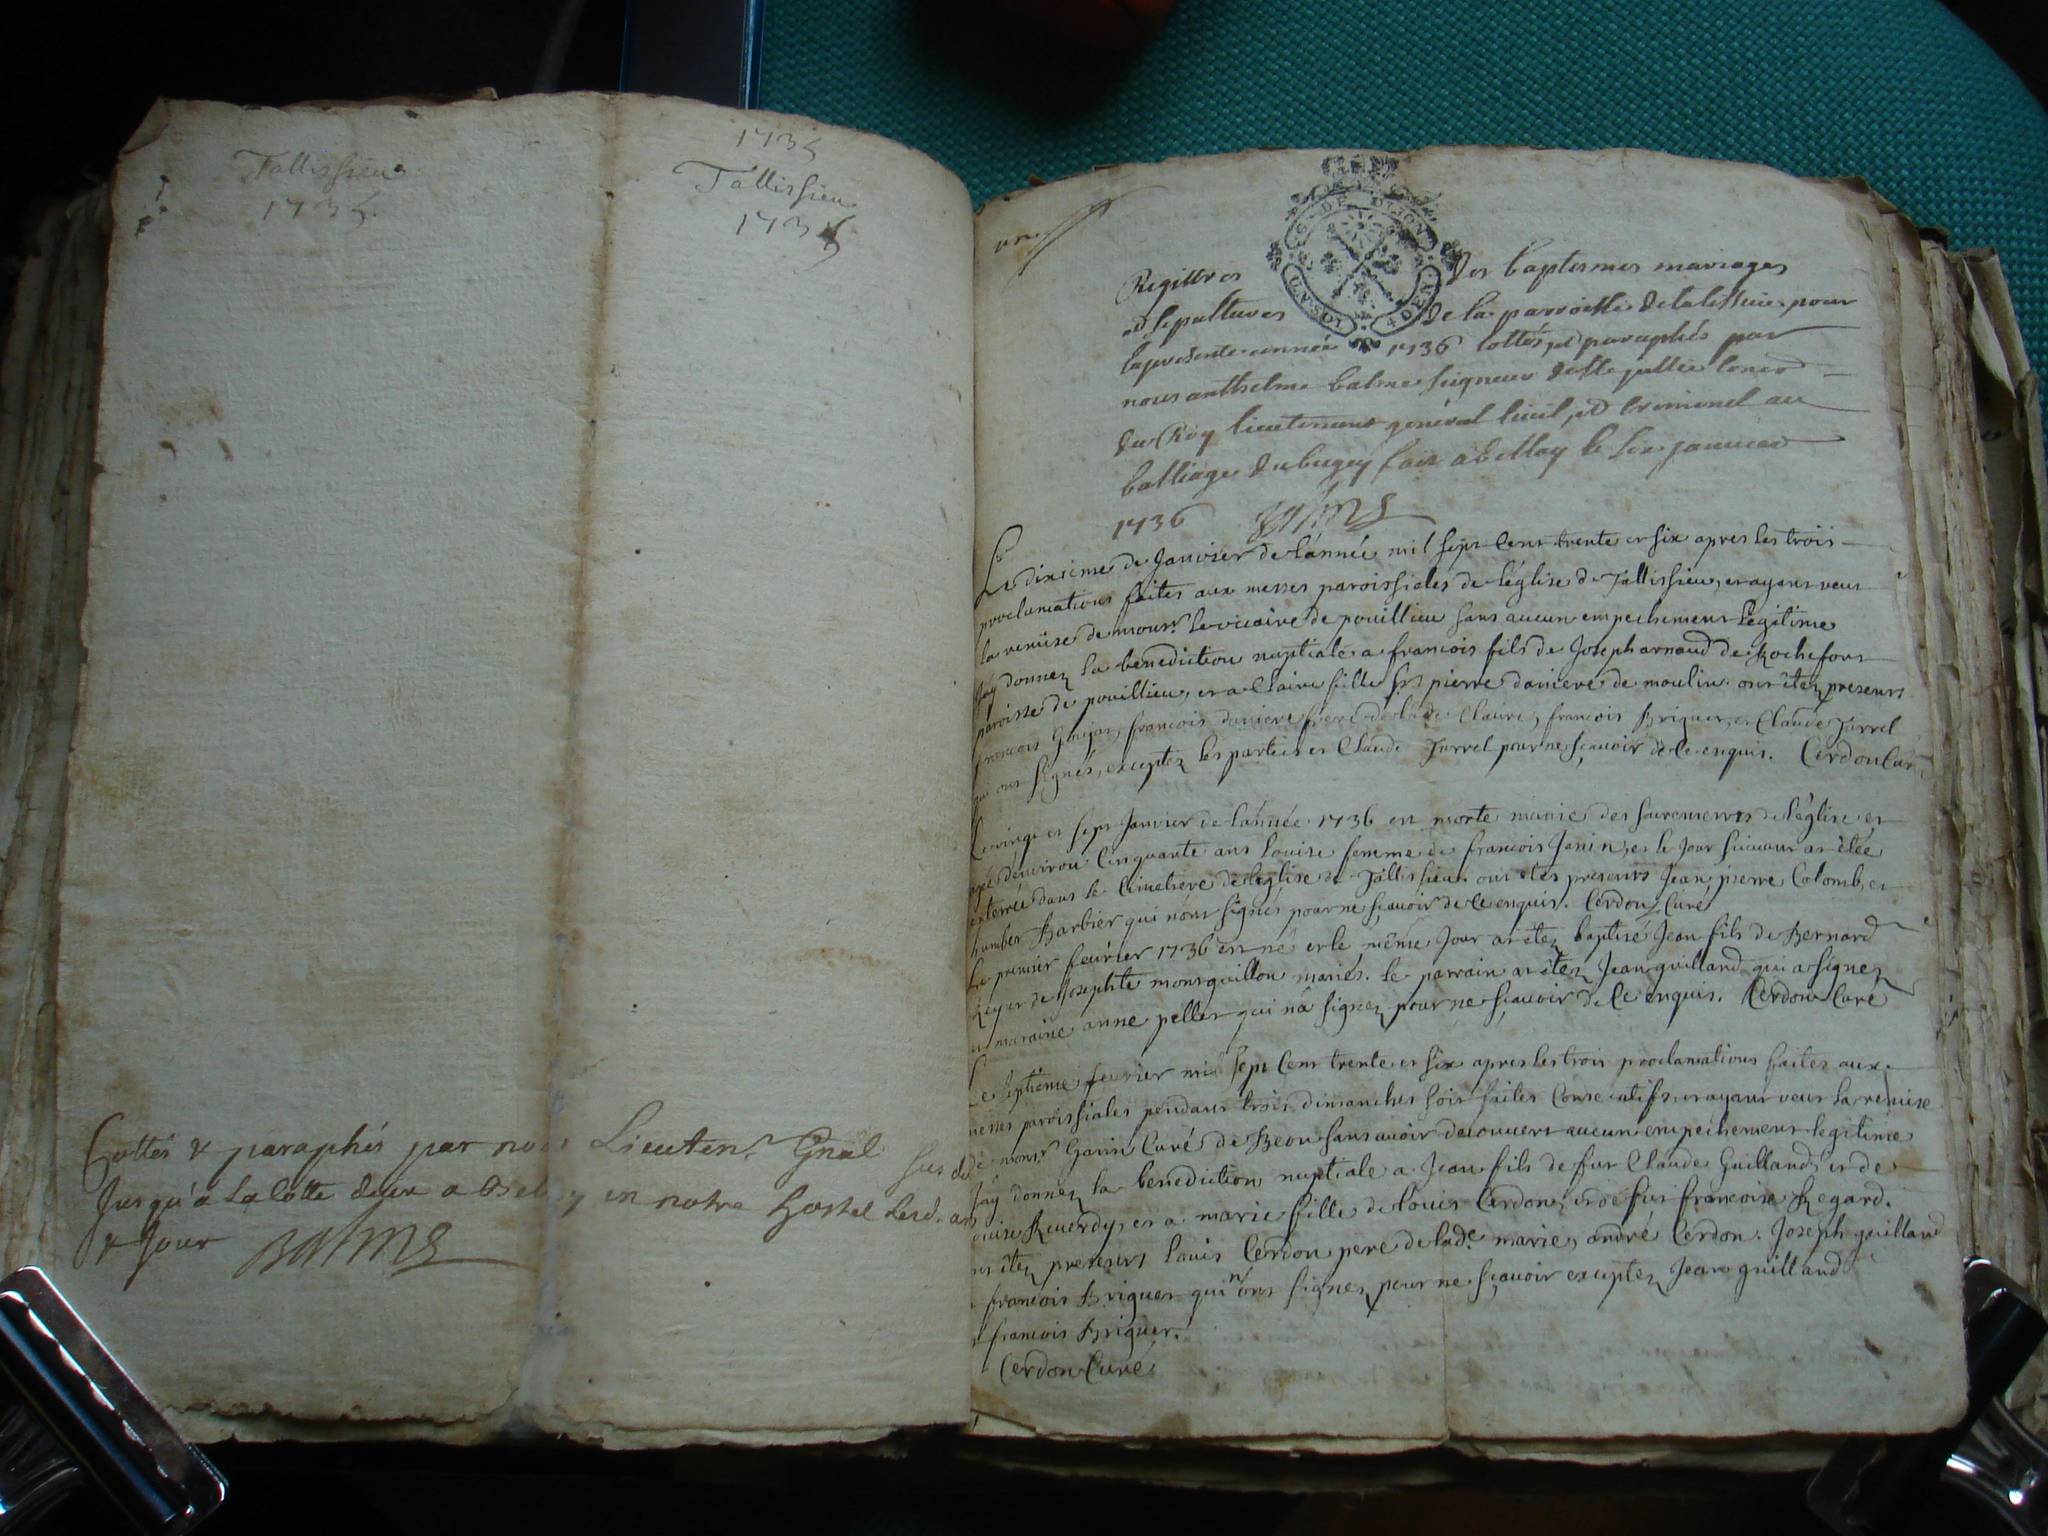 Tallissieu
1735
1735
Tallissieu
1735
Cottés & paraphés par nous Lieuten.t Gnal
Jusqu'a la Cotte deux a Belley en notre hostel
& Jour Balme
une
Registres des baptesmes mariages
et sepultures de la parroisse de talissieu pour
la presente année 1736 cottés et paraphés par
nous anthelme balme seigneur de
du Roy lieutenant general civil, et criminel au
balliage du bugey fait a belley le six janvier
1736 Balme
Le dixieme de Janvier de l'année mil sept cent trente et six apres les trois
proclamations faites aux messes paroissieles de l'église de Tallissieu, et ayant veu
la remise de monsr. le vicaire de pouillieu sans aucun empechement legitime
J'ay donnez la benediction nuptiale a francois fils de Joseph arnaud de Rochefort
paroisse de pouillieu, et a Claire fille pierre daniere de moulin. ont étez presents
francois Goujon, francois daniere frere de lade Claire, francois Briguet, et Claude Jurrel
qui ont signés, exceptez les parties et Claude Jurrel pour ne sçavoir de ce enquis. Cerdon Curé
Le vingt et sept Janvier de l'année 1736 est morte munie des sacrements de l'église et
agé d'environ Cinquante ans Louise femme de francois Janin, et le Jour suivant at étée
enterrée dans le Cimetiere de l'église de Tallissieu. ont étés presents Jean pierre Colomb, et
humber Barbier qui n'ont signés pour ne sçavoir de ce enquis. Cerdon Curé
Le premier fevrier 1736 est né et le même Jour at étez baptisé Jean fils de Bernard
Reyer de Josephte montquillon mariés. le parrain at étez Jean guilland qui a signez
la maraine anne pellet qui n'a signez pour ne sçavoir de ce enquis. Cerdon Curé
Le septieme fevrier mil sept cent trente et six apres les trois proclamations faites aux
messes paroissiales pendant trois dimanches soit faites Consecutifs et ayant veu la remise
de monsr. Curé de Beon sans avoir decouvert aucun empechement legitime
J'ay donnez la benediction nuptiale a Jean fils de fut Claude Guilland et de
Reverdy, et a marie fille de Louis Cerdon, et de fut francoise Regard.
ont étez presents Louis Cerdon pere de lade marie, andré Cerdon. Joseph guilland
francois Briguet qui n'ont signez pour ne sçavoir exceptez Jean guilland
francois Briguet.
Cerdon Curé